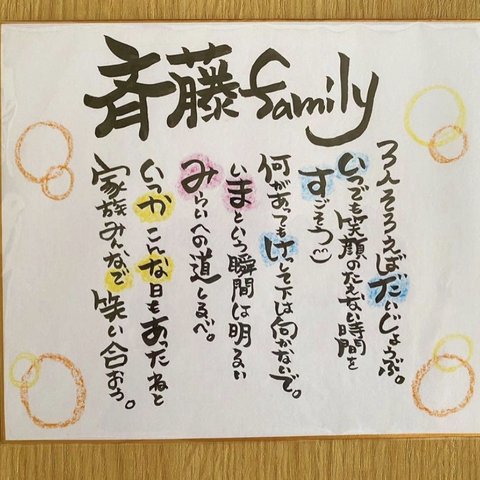 斉藤family
3人そろえばだいじょうぶ。
いつでも笑顔のたえない時間を
すごそう
何があってもけっして下は向かないで。
いまという瞬間は明るい
みらいへの道しるべ。
いつかこんな日もあったねと
家族みんなで笑い合おう。